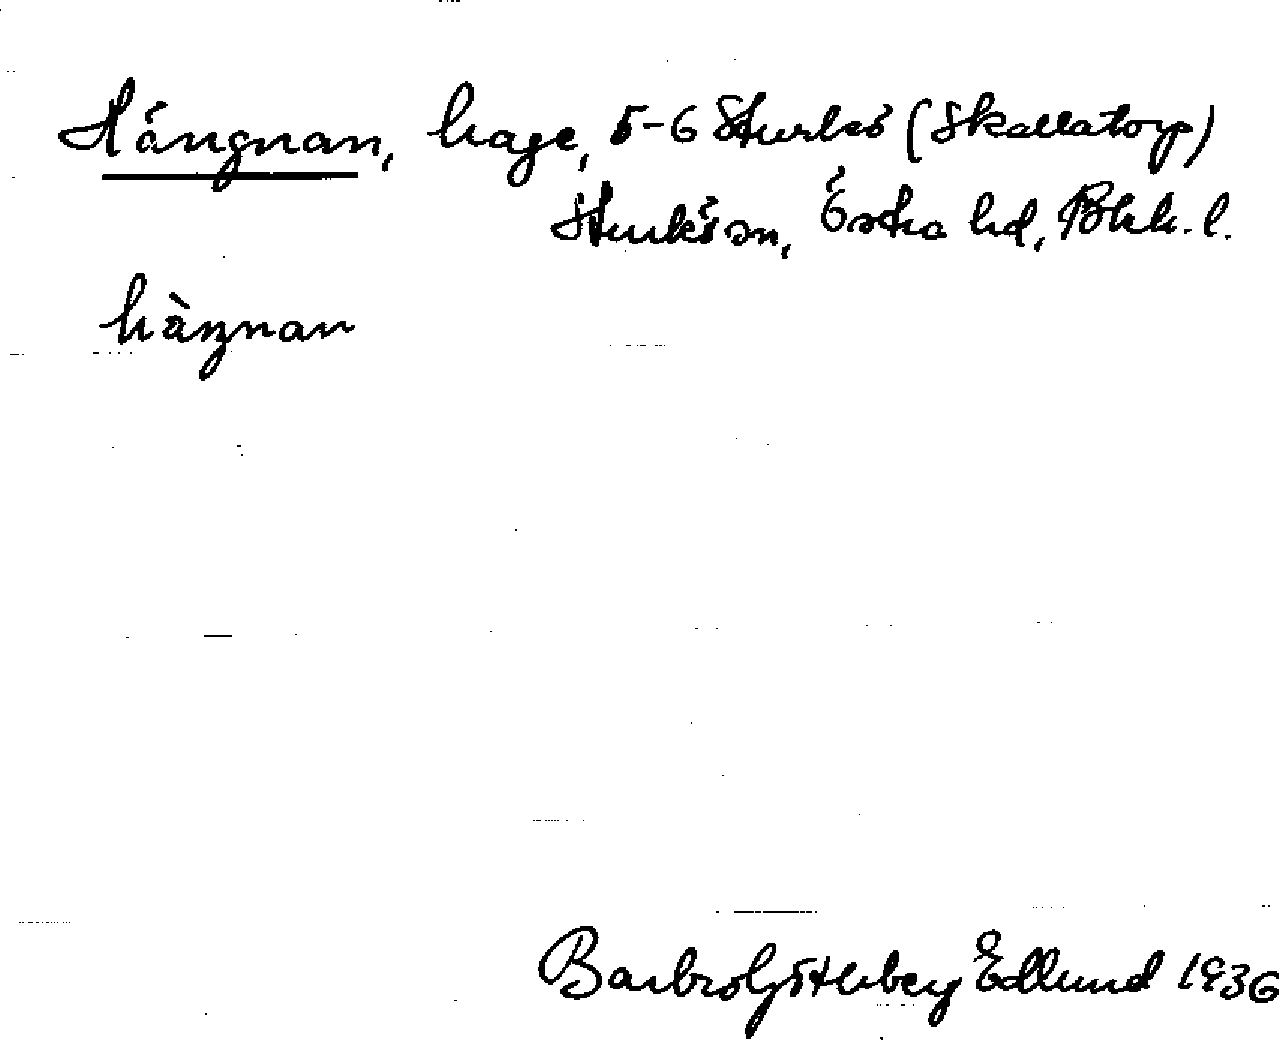 Hängnan, hage, 5-6 Sturkö (Skallatorp)
Sturkö sn, Östra hd, Blek. l.
hàŋnan
Barbro Götheberg Edlund 1936